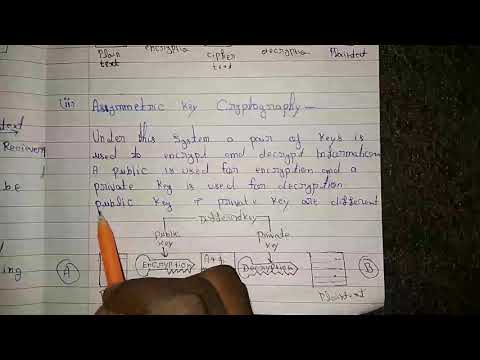 encryption decryption
Plain text cipher text Plaintext
(ii) Asymmetric Key Cryptography –
Under this system a pair of keys is
used to encrypt and decrypt information.
A public is used for encryption and a
private key is used for decryption
public key & private key are different
Different key
public key private key
A Encryption Decryption B
Plaintext
Reciever
be
ing